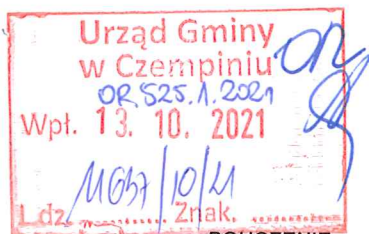 Urząd Gminy
w Czempiniu
OR
OR.525.1.2021
Wpł. 13. 10. 2021
L.dz. /10/21 Znak.